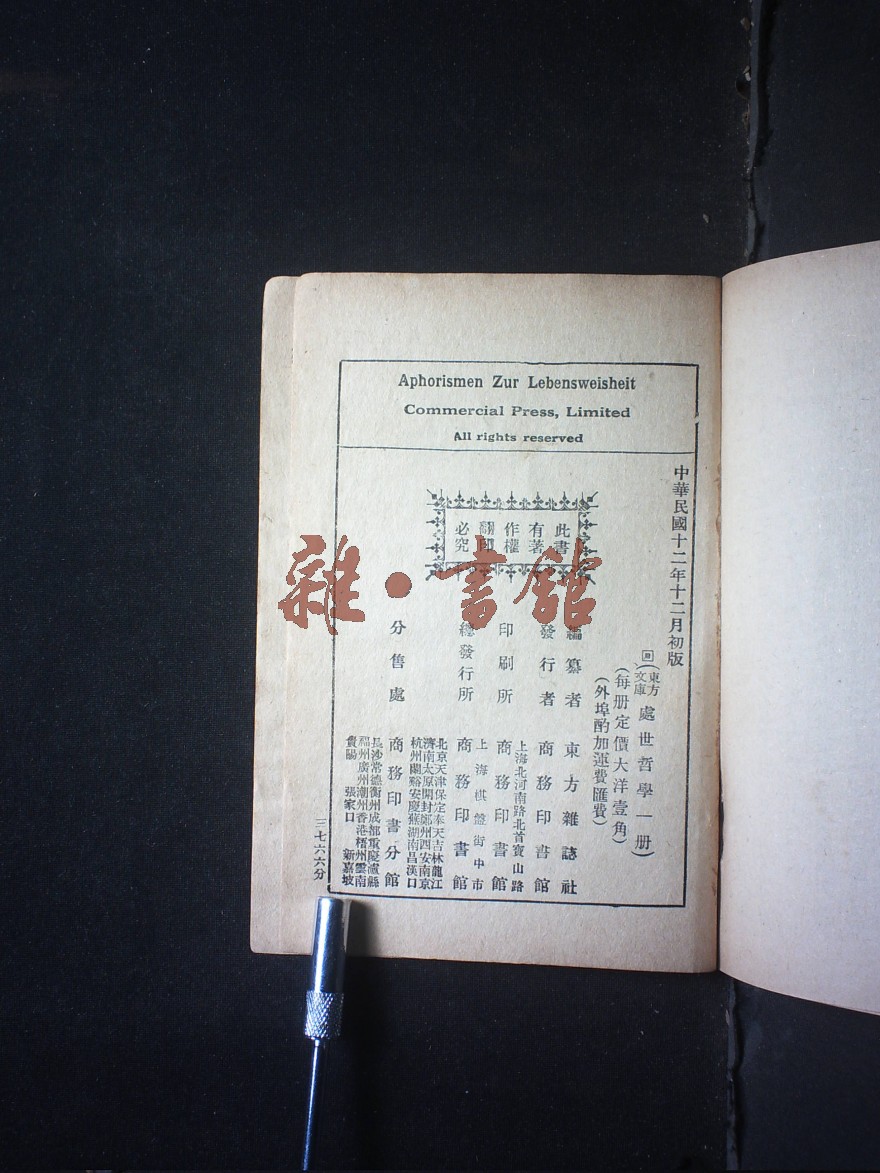 Aphorismen Zur Lebensweisheit
Commercial Press, Limited
All rights reserved
中華民國十二年十二月初版
(東方文庫)處世哲學一册)
(每册定價大洋壹角)
(外埠酌加運費匯費)
此書
有著
作權
翻印
必究
編纂者 東方雜誌社
發行者 商務印書館
上海北河南路北首寶山路
印刷所 商務印書館
上海棋盤街中市
總發行所 商務印書館
北京天津保定奉天吉林龍江
濟南太原開封鄭州西安南京
杭州蘭谿安慶蕪湖南昌漢口
分售處 商務印書分館
長沙常德衡州成都重慶瀘縣
福州廣州潮州香港梧州雲南
貴陽 張家口 新嘉坡
三七六六分
雜·書館